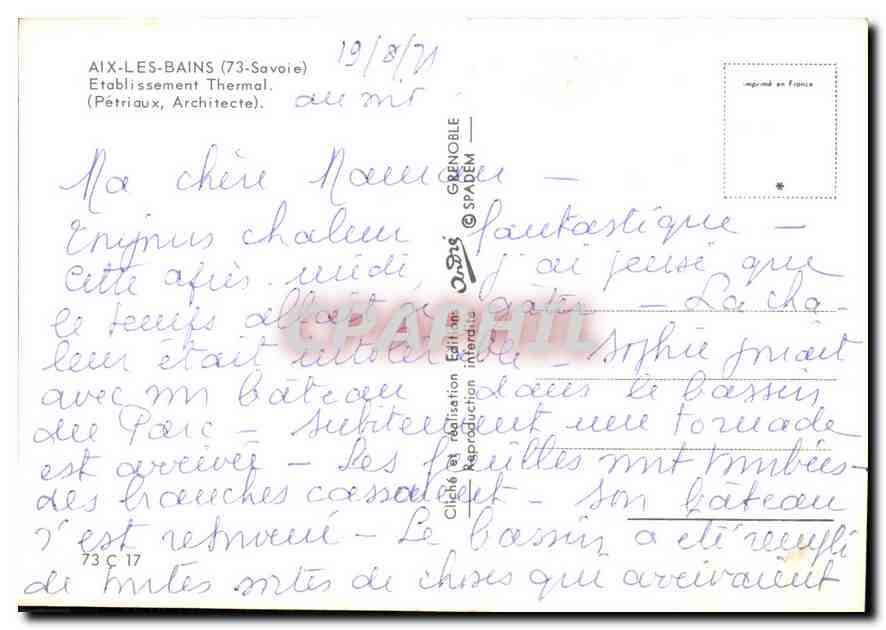 AIX-LES-BAINS (73-Savoie)
Etablissement Thermal.
(Pétriaux, Architecte).
19/8/71
imprimé en France
*
Ma chère Maman —
Toujours chaleur fantastique —
Cette après-midi, j'ai pensé que
le temps allait se gâter — La cha-
leur était intolérable — Sophie jouait
avec un bâteau dans le bassin
du Parc — Subitement une tornade
est arrivée — Les feuilles ont tombées —
Des branches cassaient — Son bâteau
s'est retourné — Le bassin a été rempli
de toutes sortes de choses qui arrivaient
73 C 17
Cliché et réalisation Editions André GRENOBLE
Reproduction interdite © SPADEM
CPAPHIL